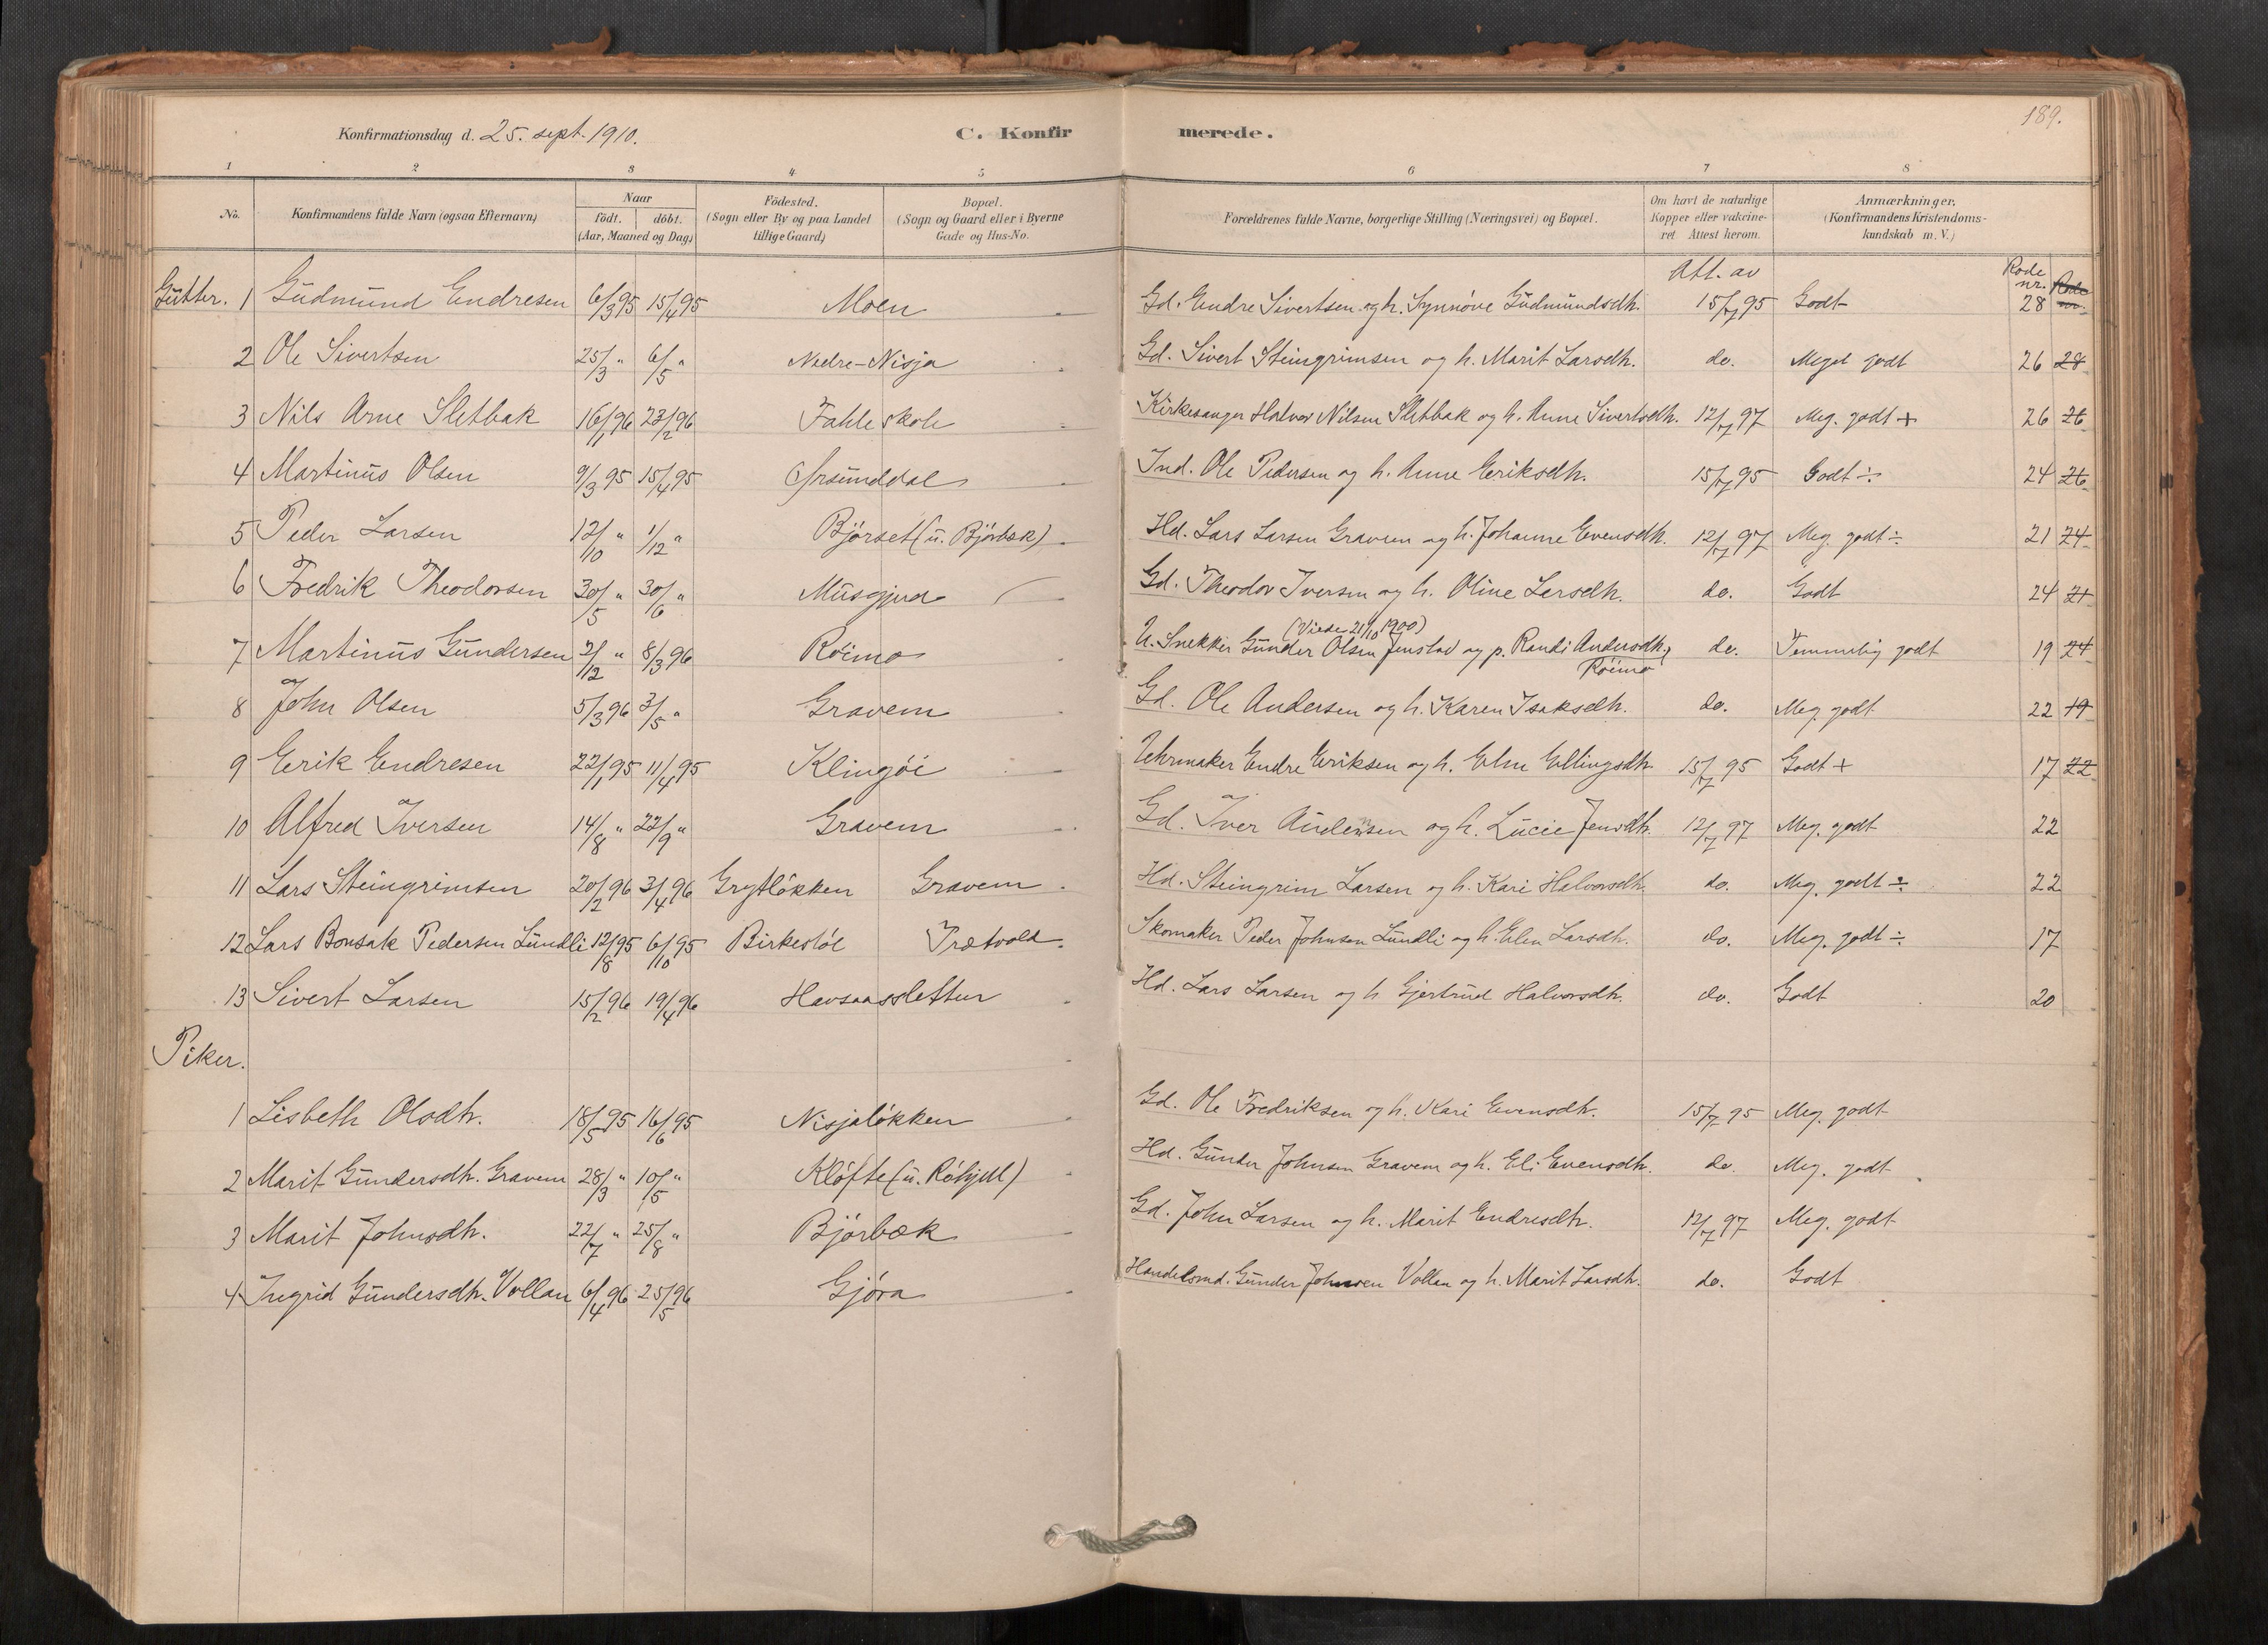 189.
Konfirmationsdag d. 25. sept. 1910. C. Konfirmerede.
1 2 3 4 5 6 7 8
No. Konfirmandens fulde Navn (ogsaa Efternavn) Naar födt. döbt. (Aar, Maaned og Dag.) Födested. (Sogn eller By og paa Landet tillige Gaard.) Bopæl. (Sogn og Gaard eller i Byerne Gade og Hus-No. Forældrenes fulde Navne, borgerlige Stilling (Næringsvei) og Bopæl. Om havt de naturlige Kopper eller vakcineret. Attest herom. Anmærkninger. (Konfirmandens Kristendomskundskab m. V.)
Att. av Rode nr. Rode nr.
Gutter. 1 Gudmund Endresen 6/3 95 15/4 95 Moen Gd. Endre Sivertsen og h. Synnøve Gudmundsdtr. 15/7 95 Godt 28
2 Ole Sivertsen 25/3 " 6/5 " Nedre-Nisja Gd. Sivert Steingrimsen og h. Marit Larsdtr. do. Meget godt 26 28
3 Nils Arne Sletbak 16/1 96 23/2 96 Fahle skole Kirkesanger Halvor Nilsen Sletbak og h. Anne Sivertsdtr. 12/7 97 Meg. godt + 26 26
4 Martinus Olsen 9/3 95 15/4 95 Grsunddal Ind. Ole Pedersen og h. Anne Eriksdtr. 15/7 95 Godt ÷ 24 26
5 Peder Larsen 12/10 " 1/12 " Bjørset (u. Bjørbæk) Hd. Lars Larsen Gravem og h. Johanne Evensdtr. 12/7 97 Meg. godt ÷ 21 24
6 Fredrik Theodorsen 30/5 " 30/6 " Musgjerd Gd. Theodor Iversen og h. Oline Larsdtr. do. Godt 24 21
(Viede 21/10 1900)
7 Martinus Gundersen 2/12 " 8/3 96 Röimo U. Snekker Gunder Olsen Jenstad og p. Randi Andersdtr. Röimo do. Temmelig godt 19 24
8 John Olsen 5/3 96 3/5 " Gravem Gd. Ole Andersen og h. Karen Isaksdtr. do. Meg. godt 22 19
9 Erik Endresen 22/1 95 11/4 95 Klingøi Uhrmaker Endre Eriksen og h. Elen Ellingsdtr. 15/7 95 Godt + 17 22
10 Alfred Iversen 14/8 " 22/9 " Gravem Gd. Iver Andersen og h. Lucie Jensdtr. 12/7 97 Meg. godt 22
11 Lars Steingrimsen 20/2 96 3/4 96 Grytløkken Gravem Hd. Steingrim Larsen og h. Kari Halvorsdtr. do. Meg. godt ÷ 22
12 Lars Bonsak Pedersen Lundli 12/8 95 6/10 95 Birkestøl Trætvold Skomaker Peder Johnsen Lundli og h. Elen Larsdtr. do. Meg. godt ÷ 17
13 Sivert Larsen 15/2 96 19/4 96 Havsaasslettun Hd. Lars Larsen og h. Gjertrud Halvorsdtr. do. Godt 20
Piker.
1 Lisbeth Olsdtr. 18/5 95 16/6 95 Nisjaløkken Gd. Ole Fredriksen og h. Kari Evensdtr. 15/7 95 Meg. godt
2 Marit Gundersdtr. Gravem 28/3 " 10/5 " Kløfte (u. Röhjell) Hd. Gunder Johnsen Gravem og h. Eli Evensdtr. do. Meg. godt
3 Marit Johnsdtr. 22/7 " 25/8 " Bjørbæk Gd. John Larsen og h. Marit Endresdtr. 12/7 97 Meg. godt
4 Ingrid Gundersdtr. Vollan 6/4 96 25/5 96 Gjøra Handelsmd. Gunder Johnsen Vollan og h. Marit Larsdtr. do. Godt